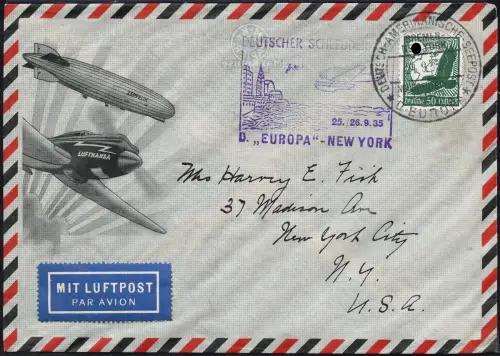 DEUTSCHER
25./26.9.35
D. „EUROPA"-NEW YORK
DEUTSCH-AMERIKANISCHE SEEPOST
BREMEN-
NEW YORK
50
ZEPPELIN
LUFTHANSA
Mrs Harvey E. Fish
37 Madison Ave
New York City
N.Y.
U.S.A.
MIT LUFTPOST
PAR AVION